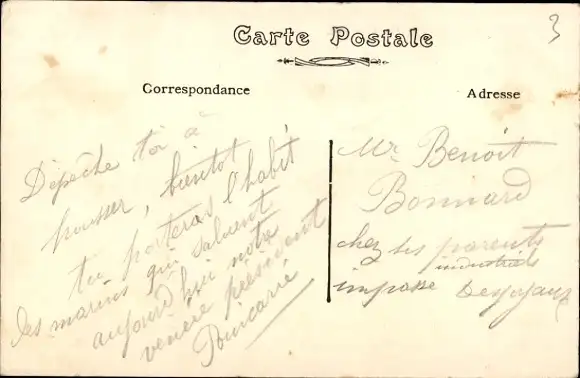 3
Carte Postale
Correspondance
Adresse
Dépêche toi à
pousser, bientot
tu porteras l'habit
des marins qui saluent
aujourd'hui notre
vénéré président
Poincarré
Mr Benoit
Bonnard
chez ses parents
industriels
impasse Desjoyaux